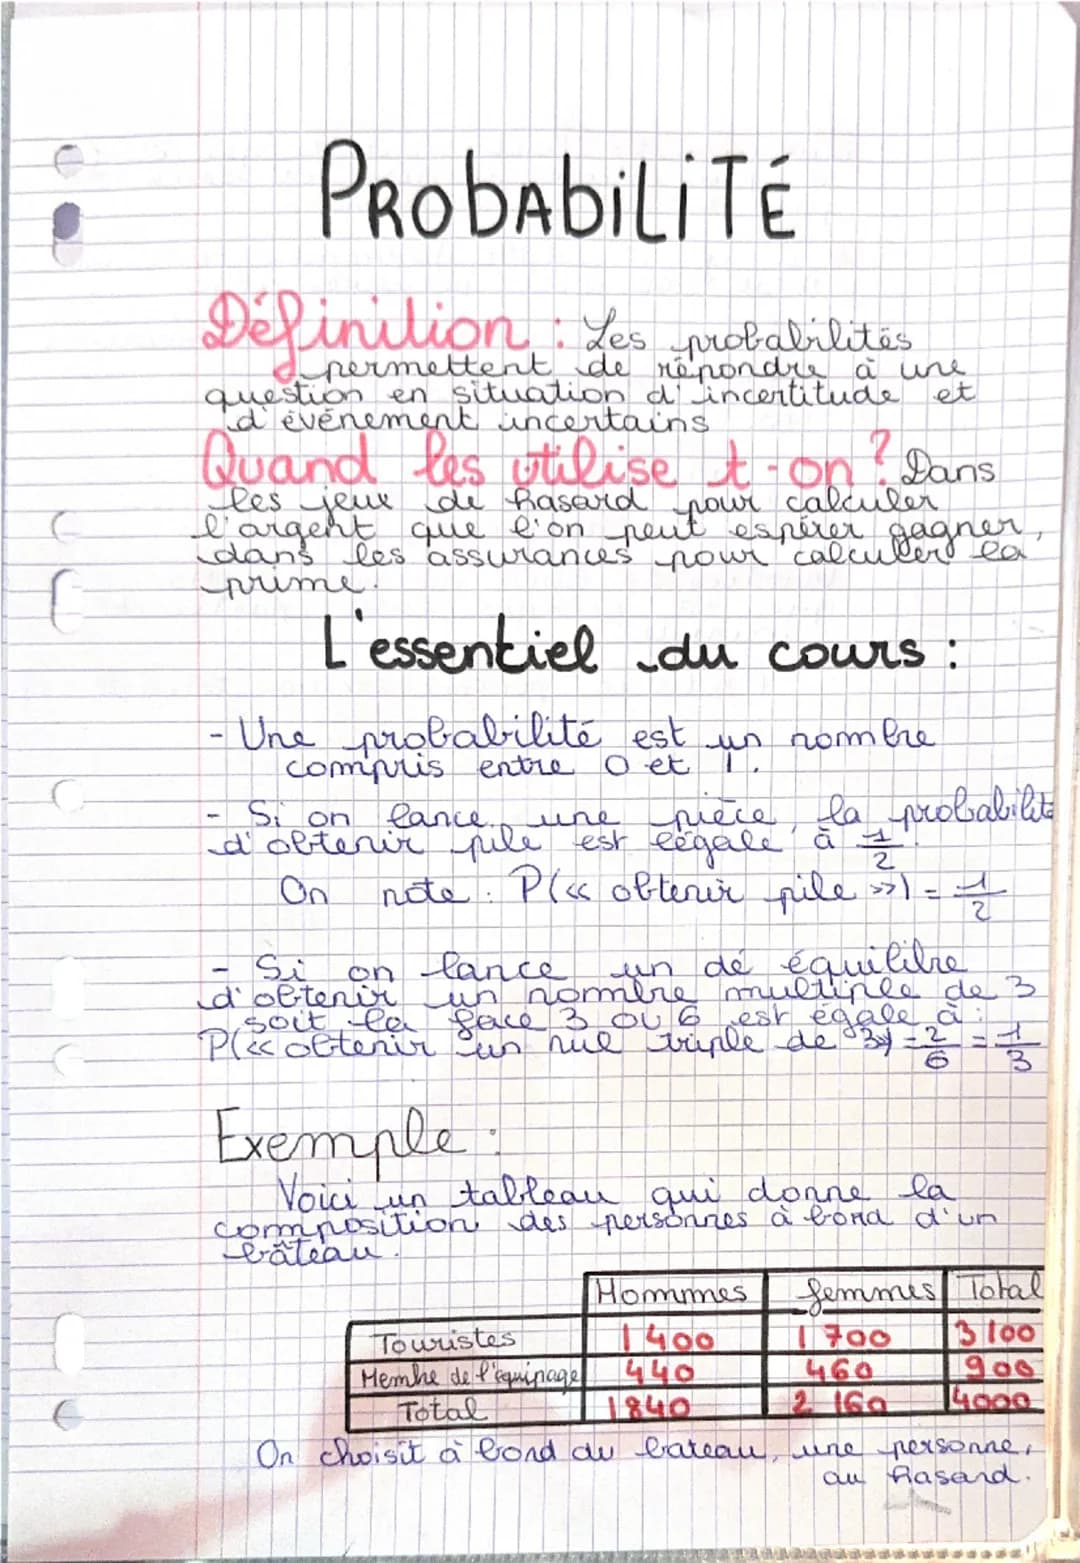 PRObAbiLiTÉ
Définition : Les probabilités
permettent de répondre à une
question en situation d'incertitude et
d'événement incertains
Quand les utilise t-on? Dans
les jeux de hasard pour calculer
l'argent que l'on peut espérer gagner,
dans les assurances pour calculer la
prime.
L'essentiel du cours :
- Une probabilité est un nombre
compris entre 0 et 1.
- Si on lance une pièce, la probabilité
d'obtenir pile est légale à 1/2.
On note : P(<< obtenir pile >>) = 1/2
- Si on lance un dé équilibre
d'obtenir un nombre multiple de 3
soit la face 3 ou 6 est égale à :
P(<< obtenir un nul triple de 3>>) = 2/6 = 1/3
Exemple :
Voici un tableau qui donne la
composition des personnes à bord d'un
bâteau.
Hommes femmes Total
Touristes 1 400 1 700 3 100
Membre de l'équipage 440 460 900
Total 1 840 2 160 4000
On choisit à bord du bateau, une personne,
au hasard.